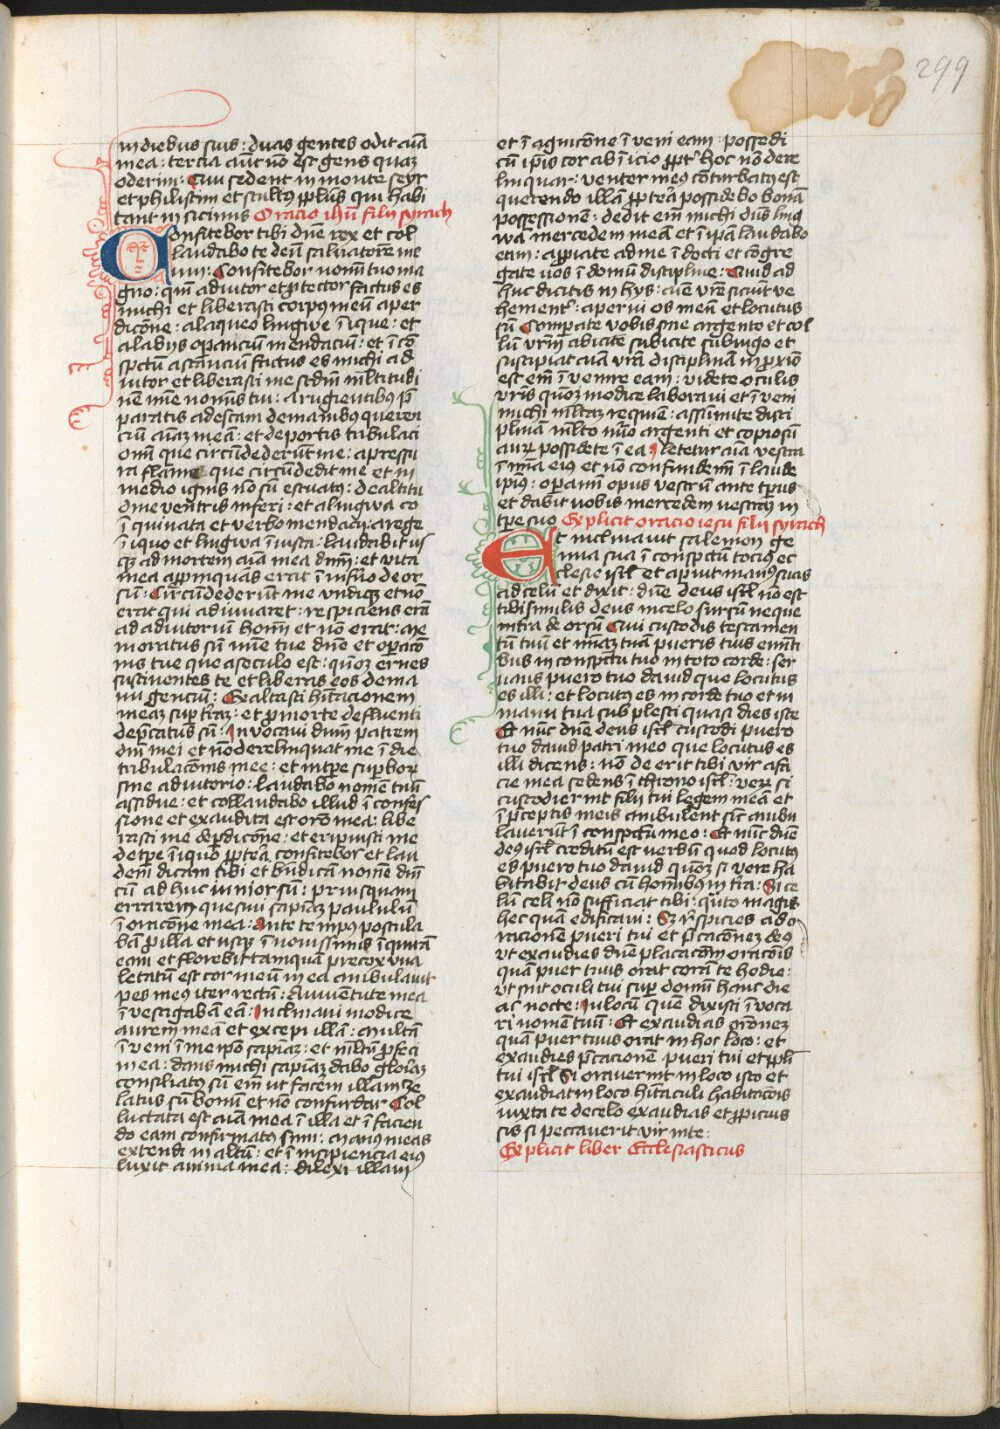 299
in diebus suis : duas gentes odit aīa
mea : tercia aūt nō est gens quaꝫ
oderim : Qui sedent in monte seyr
et philistim et stultꝰ ppl̄us qui habi
tant in sicimis Oracio ihū filii syrach
Confitebor tibi dn̄e rex et col
laudabo te deū saluatorē me
um : Confitebor nom̄i tuo ma
gno : qm̄ adiutor et ꝓtector factus es
michi et liberasti corpꝰ meū a per
dicōne : a laqueo lingwe īique : et
a labijs oꝑanciū mendaciū : et ī cō
spc̄tu astanciū factus es michi ad
iutor et liberasti me sc̄dm ml̄titudi
nē mīe nominis tui : a rugientibus p̄
paratis ad escam de manibꝰ queren
ciū aīaꝫ meā : et de portis tribulaci
onū que circūdederūt me : a pressu
ra flāme que circūdedit me et in
medio ignis nō sū estuatꝰ : de altitu
dine ventris inferi : et a lingwa co
īquinata et verbo mendacij : a rege
īiquo et lingwa īiusta : laudabit us
qꝫ ad mortem aīa mea dn̄m : et vita
mea appīnquās erat ī inferno deor
sū : Circūdederūt me vndiqꝫ et nō
erat qui adiuuaret : respiciens erā
ad adiutoriū homī et nō erat : Me
moratus sū mīe tue dn̄e et oꝑacō
nis tue que a seculo est : qm̄ erues
sustinentes te et liberas eos de ma
nu genciū : Exaltasti habitacionem
meaꝫ suꝑ terraꝫ : et ꝓ morte defluenti
dep̄catus sū : Inuocaui dn̄m patrem
dn̄i mei et nō derelinquat me ī die
tribulacōnis mee : et in tꝑe suꝑborꝫ
sine adiutorio : laudabo nomē tuū
assidue : et collaudabo illud ī confes
sione et exaudita est orō mea : libe
rasti me de ꝑdicōne : et eripuisti me
de tꝑe īiquo ꝓpterea confitebor et lau
dem dicam tibi et bn̄dicā nomē dn̄i
cū ad huc iunior sū : priusquam
errarem quesiui sapiāꝫ paululū
ī oracōne mea : Ante tempꝰ postula
bā ꝓ illa et usqꝫ ī nouissimis īquirā
eam et florebit tamquā precox vua
letatū est cor meū in ea ambulauit
pes meꝰ iter rectū : A iuuentute mea
īvestigabam eā : Inclinaui modice
aurem meā et excepi illā : Multā
īveni ī me ip̄o sapiāꝫ : et ml̄tū ꝓfeci
in ea : dans michi sapiāꝫ dabo gloīaꝫ
consiliatꝰ sū em̄ ut facem illam ze
latus sū bonū et nō confundar Col
luctata est aīa mea ī illa et ī facien
do eam confirmatꝰ sum : Manꝰ meas
extendi in altū : et ī insipiencia eiꝰ
luxit anima mea : dilexi illam
et ī agnicōne īveni eam : possedi
cū ip̄is cor ab īicio ꝓpt̄ hoc nō dere
linquar : venter meꝰ cōturbatꝰ est
querendo illā ꝓpterea possidebo bonā
possessionē : dedit em̄ michi dn̄s ling
wā mercedem meā et ī ip̄a laudabo
eam : appiate ad me īdocti et cōgre
gate uos ī domū discipline : Quid ad
huc dicitis in hys : aīe vr̄e siciūt ve
hementer : aperui os meū et locutus
sū Compate vobis sine argento et col
lū vrm̄ abicite subicite sub iugo et
suscipiat aīa vrā disciplinā in ꝓxīo
est em̄ īvenire eam : videte oculis
vris qm̄ modice laboraui et īveni
michi ml̄taꝫ requiē : assumite disci
plinā ml̄to nūo argenti et copiosū
aurꝫ possidete ī ea letetur aīa vestra
ī mīa eiꝰ et nō confundemī ī laude
ipiꝰ : oꝑamī opus vestrū ante tempus
et dabit uobis mercedem uestrā in
tꝑe suo Explicit oracio iesu filij syrach
Et inclinauit salemon ge
nua sua ī conspectū tociꝰ ec
clesie isrl̄ et aperuit manꝰ suas
ad celū et dixit : dn̄e deus isrl̄ nō est
tibi similis deus in celo sursū neque
in terra deorsū Qui custodis testamen
tū tuū et mīaꝫ tuā pueris tuis eūnti
bus in conspectu tuo in toto corde : ser
uans puero tuo dauid que locutus
es illi : et locutꝰ es in corde tuo et in
manu tua sub plesti quasi dies iste
Et nūc dn̄e deus isrl̄ custodi puero
tuo dauid patri meo que locutus es
illi dicens : nō deerit tibi vir a fa
cie mea sedens ī throno isrl̄ : verꝫ si
custodierint filij tui legem meā et
ī p̄ceptis meis ambulent sic̄ ambu
lauerūt ī conspectu meo : Et nūc dn̄e
deꝰ isrl̄ creditū est verbū quod locutꝰ
es puero tuo dauid quoꝫ si vere ha
bitabit deus cū hominibꝰ in tīa : Si ce
lū celi nō sufficiat tibi : q̄nto magis
hec quā edificaui : Sꝫ respicies ad o
racionē pueri tui et p̄cacōneꝫ eiꝰ
ut exaudies dn̄e placacōnē oracōnis
quā puer tuus orat corā te hodie :
ut sint oculi tui super domū hanc die
ac nocte : In locū quē dixisti īvoca
ri nomē tuū : Et exaudias orōneꝫ
quā puer tuus orat in hoc loco : et
exaudies p̄cacionē pueri tui et ppl̄i
tui isrl̄ Si orauerint in loco isto et
exaudiat in loco habitaculi habitacōnis
iuxta te de celo exaudias et ꝓpicius
sis si peccauerit vir in te :
Explicit liber Ecclesiasticus